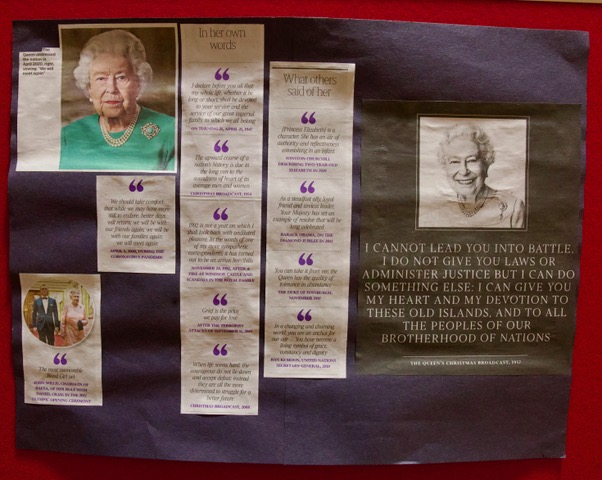 The
Queen addressed
the nation in
April 2020, right,
saying: "We will
meet again"
We should take comfort
that while we may have more
still to endure, better days
will return: we will be with
our friends again; we will be
with our families again;
we will meet again
APRIL 5, 2020, DURING THE
CORONAVIRUS PANDEMIC
The most memorable
Bond Girl yet
OLYMPIC OPENING CEREMONY
In her own
words
I declare before you all that
my whole life, whether it be
long or short, shall be devoted
to your service and the
service of our great imperial
family to which we all belong
ON TURNING 21, APRIL 21, 1947
The upward course of a
nation's history is due in
the long run to the
soundness of heart of its
average men and women
CHRISTMAS BROADCAST, 1954
1992 is not a year on which I
shall look back with undiluted
pleasure. In the words of one
of my more sympathetic
correspondents, it has turned
out to be an annus horribilis
Grief is the price
we pay for love
AFTER THE TERRORIST
ATTACKS OF SEPTEMBER 11, 2001
When life seems hard, the
courageous do not lie down
and accept defeat; instead
they are all the more
determined to struggle for a
better future
CHRISTMAS BROADCAST, 2008
What others
said of her
[Princess Elizabeth] is a
character. She has an air of
authority and reflectiveness
astonishing in an infant
WINSTON CHURCHILL
DESCRIBING TWO-YEAR-OLD
ELIZABETH IN 1928
As a steadfast ally, loyal
friend and wise leader
Your Majesty has set an
example of resolve that will be
long celebrated
BARACK OBAMA, ON THE
DIAMOND JUBILEE IN 2012
You can take it from me, the
Queen has the quality of
tolerance in abundance
THE DUKE OF EDINBURGH,
NOVEMBER 1997
In a changing and churning
world, you are an anchor for
our age
constancy and dignity
BAN KI-MOON, UNITED NATIONS
SECRETARY-GENERAL, 2010
I CANNOT LEAD YOU INTO BATTLE,
I DO NOT GIVE YOU LAWS OR
ADMINISTER JUSTICE BUT I CAN DO
SOMETHING ELSE: I CAN GIVE YOU
MY HEART AND MY DEVOTION TO
THESE OLD ISLANDS, AND TO ALL
THE PEOPLES OF OUR
BROTHERHOOD OF NATIONS
THE QUEEN'S CHRISTMAS BROADCAST, 1957